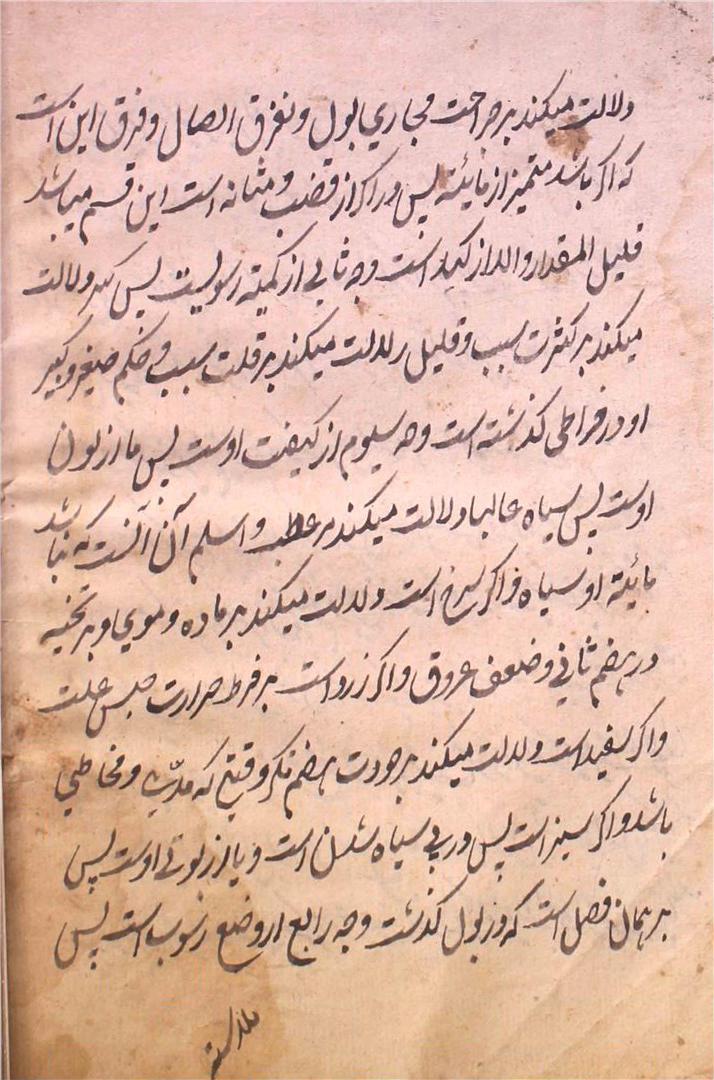 دلالت میکند بر جراحت مجاری بول و تفرق اتصال و فرق این است
که اگر باشد متمیز از مائیته پس دراک از قضب و مثانه است این قسم میباشد
قلیل المقدار والا از کلیه است وجه ثانی از کمیته رسوبست پس کثیر دلالت
میکند بر کثرت سبب و قلیل دلالت میکند بر قلت سبب و حکم صغیر و کبیر
او در خراطی گذشته است وجه سیوم از کیفیت اوست پس ما از لون
اوست پس سیاه غالبا دلالت میکند بر عطب و اسلم آن آنست که نباشد
مائیته او سیاه و اگر سرخ است دلالت میکند بر ماده دموی و بر تخمیه
در هضم ثانی و ضعف عروق و اگر زرد است بر فرط حرارت علت
و اگر سفید است دلالت میکند بر جودت هضم مگر وقتی که مدّی و مخاطی
باشد و اگر سبز است پس در پی سیاه شدن است و یا از اوست پس
بر همان فصل است که در بول گذشت وجه رابع از وضع رسوب است پس